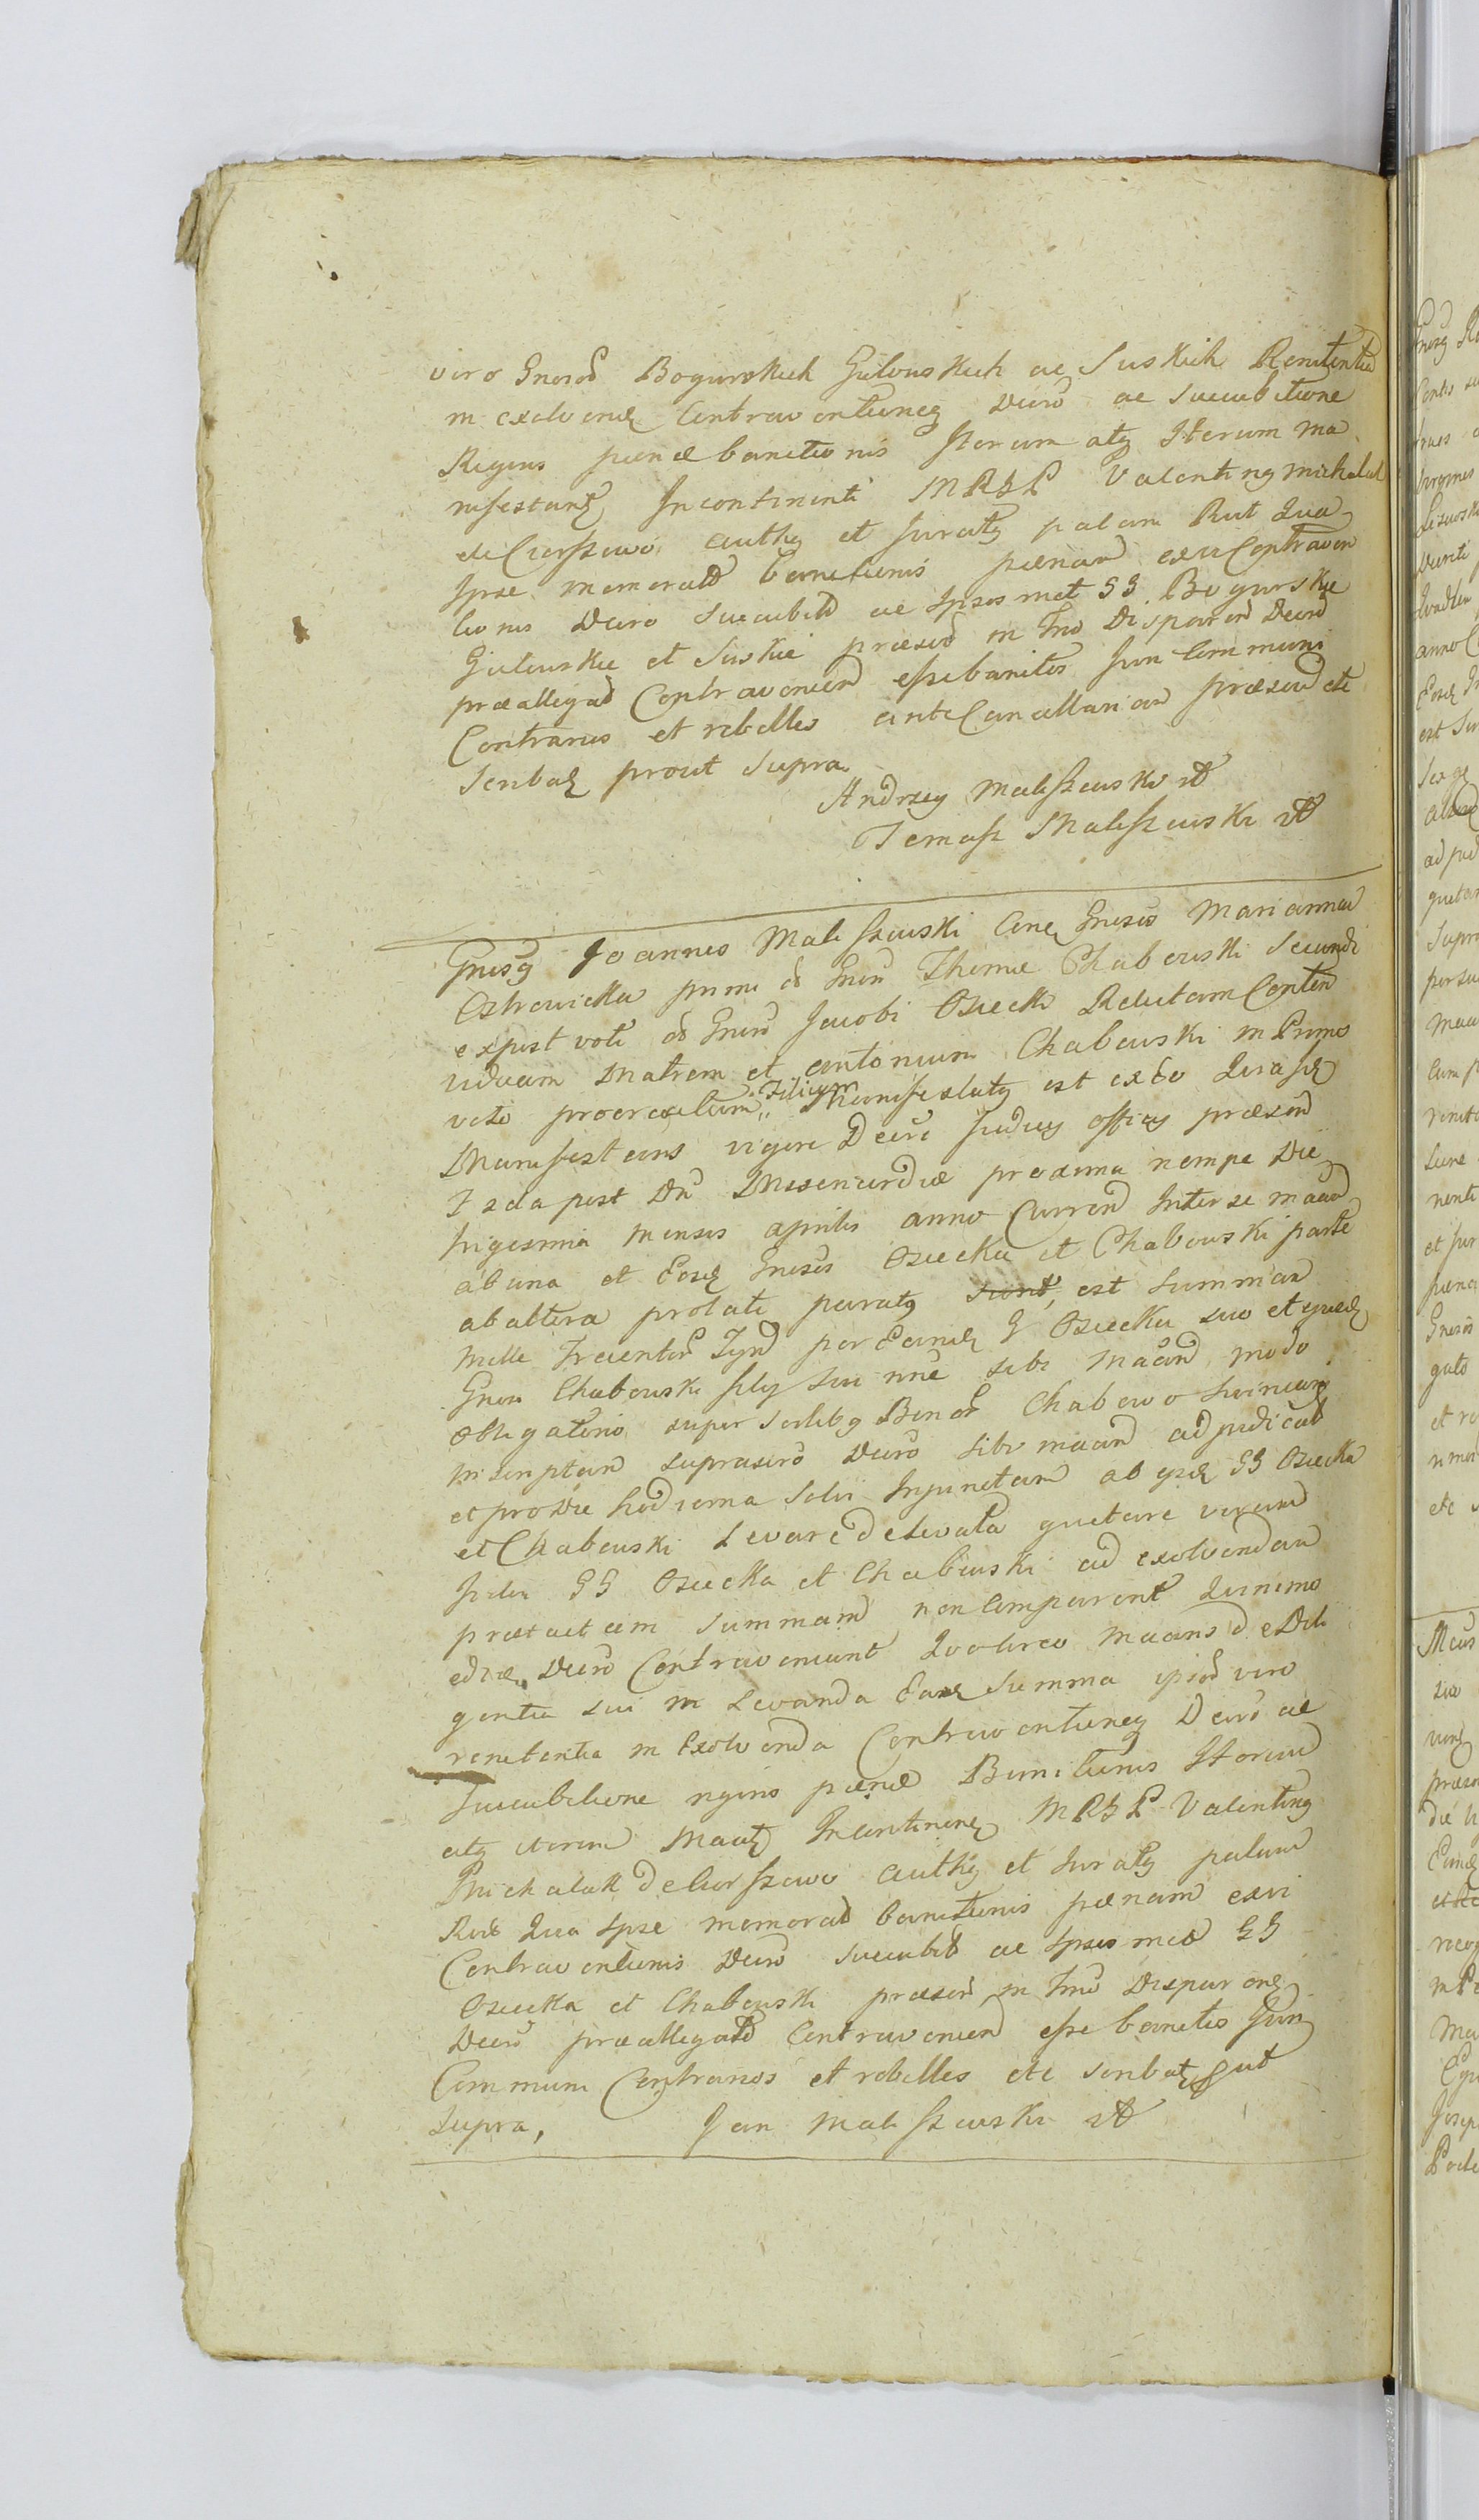 viro Gnosor Bogurskich Gulowskich ac Suskich Renitentia
in exolvend Contraventioneq Decri ac Succubitione
Regens poenae banitionis Iterum atq Iterum Ma
nifestantq Incontinenti MRGP Valentinq Michalak
de Cierszewo authq et juratq palam Rut Qua
Ipse memoratd banitionis poenam exvi Contraven
tionis Decri succubitd ac Ipsosmet GG Bogurskie
Gulowskie et Suskie praesed in Tno Disparend Decrd
praeallegatd Contravenien esse banitos Jur Communi
Contrarios et rebelles ante Cancellariam praesend etc
scribatq prout supra
Andrzey Maliszewski
Tomasz Maliszewski
Gnosq Joannes Maliszewski Cone Gnosos Mariannam
Ostrowicka primi olim Gnosi Thomae Chabowski Secundi
expost voti olim Gnosi Jacobi Osiecki Relictam Consten
viduam Matrem et Antonium Chabowski in Primo
voto procreatum Filium Manifestatq est ex eo Quia Ipse
Manifestans vigore Decri Judicy officy praesen
Feria post Dn Misericordiae proxima nempe Die
trigesima mensis aprilis anno Curren Inter se maan
ab una et Eosq Gnosos Osiecka et Chabowski parte
ab altera prolati paratq sunt, est Summam
Mille Trecentor Tynd per Eandq G Osiecka suo et ejusdq
Gnosi Chabowski filij sui nne sibi Maand modo
obligatorio super sortibq Bonor Chabowo Swiniary
inscriptam suprascro Decro sibi maan adjudicat
et pro Die hodierna solvi Injunctam ab ijsdq GG Osiecka
et Chabowski Levare de levata quetare verum
Jidem GG Osiecka et Chabowski ad exolvendam
praetactam Summam non Comparent Quinimo
edicto Decro Contraveniunt Quocirca Maans de Dili
gentia sui in Levanda Eadq Summa ipsor vero
renitentia in Exolvenda Contraventioneq Decri ac
succubitione regens poenae Banitionis Iterum
atq iterum Maatq Incontinenq MRGP Valentinq
Michalak de Cierszewo authq et Juratq palam
Rut Qua Ipse memorat banitionis poenam exvi
Contraventionis Decri succubit ac Ipsosmet GG
Osiecka et Chabowski praesen in Tno Disparenq
Decro praeallegatd Contravenien esse banitos Juri
Communi Contrarios et rebelles etc scribatq ut
supra, Jan Maliszewski